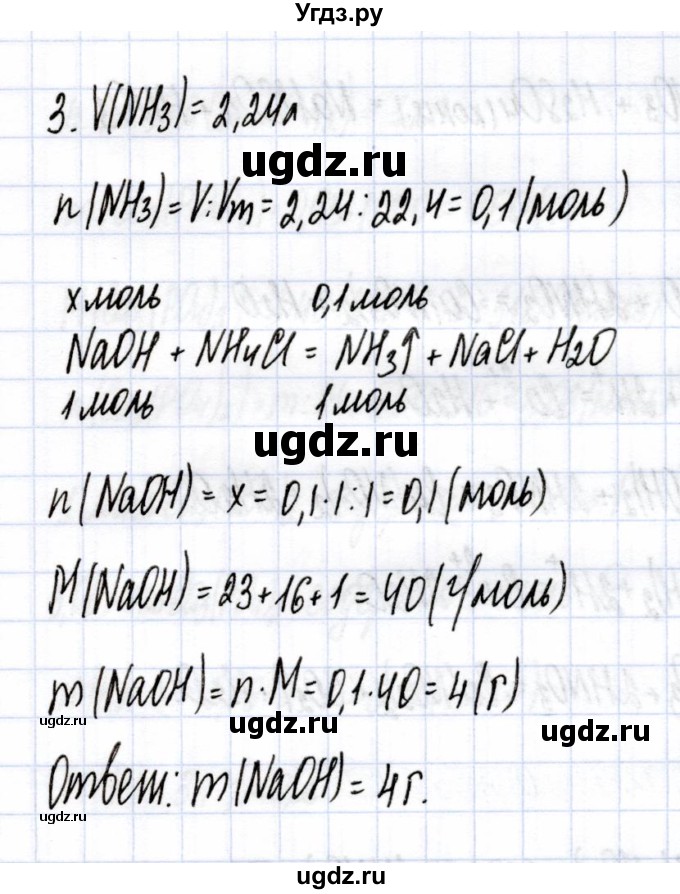 Угдз.ру
3. V(NH3) = 2,24л
ugdz.ru
n(NH3) = V:Vm = 2,24:22,4 = 0,1(моль)
x моль 0,1 моль
NaOH + NH4Cl = NH3↑ + NaCl + H2O
1 моль 1 моль
ugdz.ru
n(NaOH) = x = 0,1·1:1 = 0,1(моль)
M(NaOH) = 23+16+1 = 40(г/моль)
m(NaOH) = n·M = 0,1·40 = 4(г)
ugdz.ru ugdz.ru ugdz.ru
Ответ: m(NaOH) = 4г.
ugdz.ru
ugdz.ru